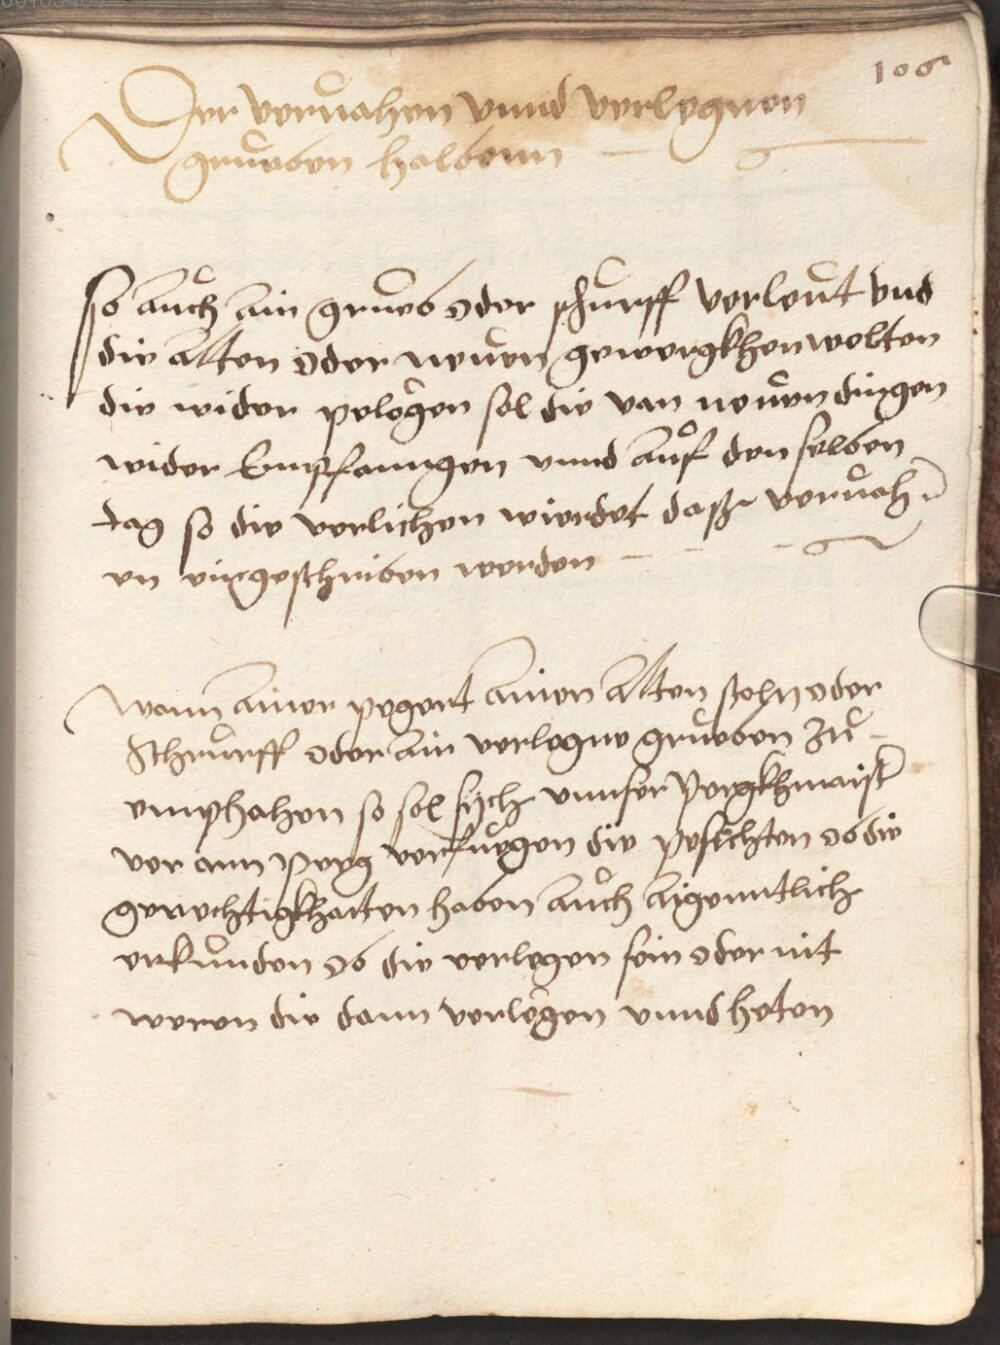 106
Der veruahen vnnd verlegnen
grueben halbenn
So auch ain grueb oder schurff verleut vnd
die alten oder neuen gewergkhen wolten
die wider pelegen sol die van neuen dingen
wider Empfanngen vnnd auf den selben
tag so die verlichen wierdet daß veruah
en eingeschriben werden
Wann ainer pegert ainen alten stoln oder
Schrurff oder ain verlegne grueben zu
emphahen so sol sych vnnser Pergkhmaister
vor ann Perg verfuegen die pesichten ob die
gerechtigkhaiten haben auch aigenntlich
erkunden ob die verlegen sein oder nit
weren die dann verlegen vnnd heten